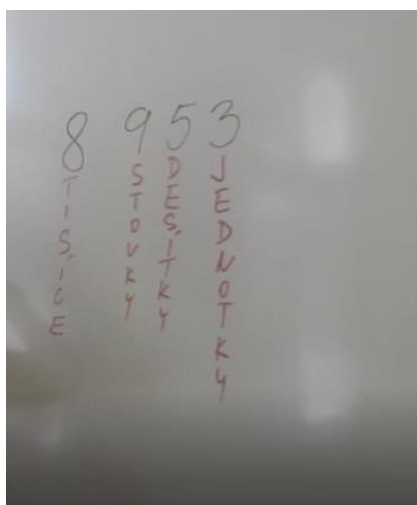 8 953
TISÍCE
STOVKY
DESÍTKY
JEDNOTKY